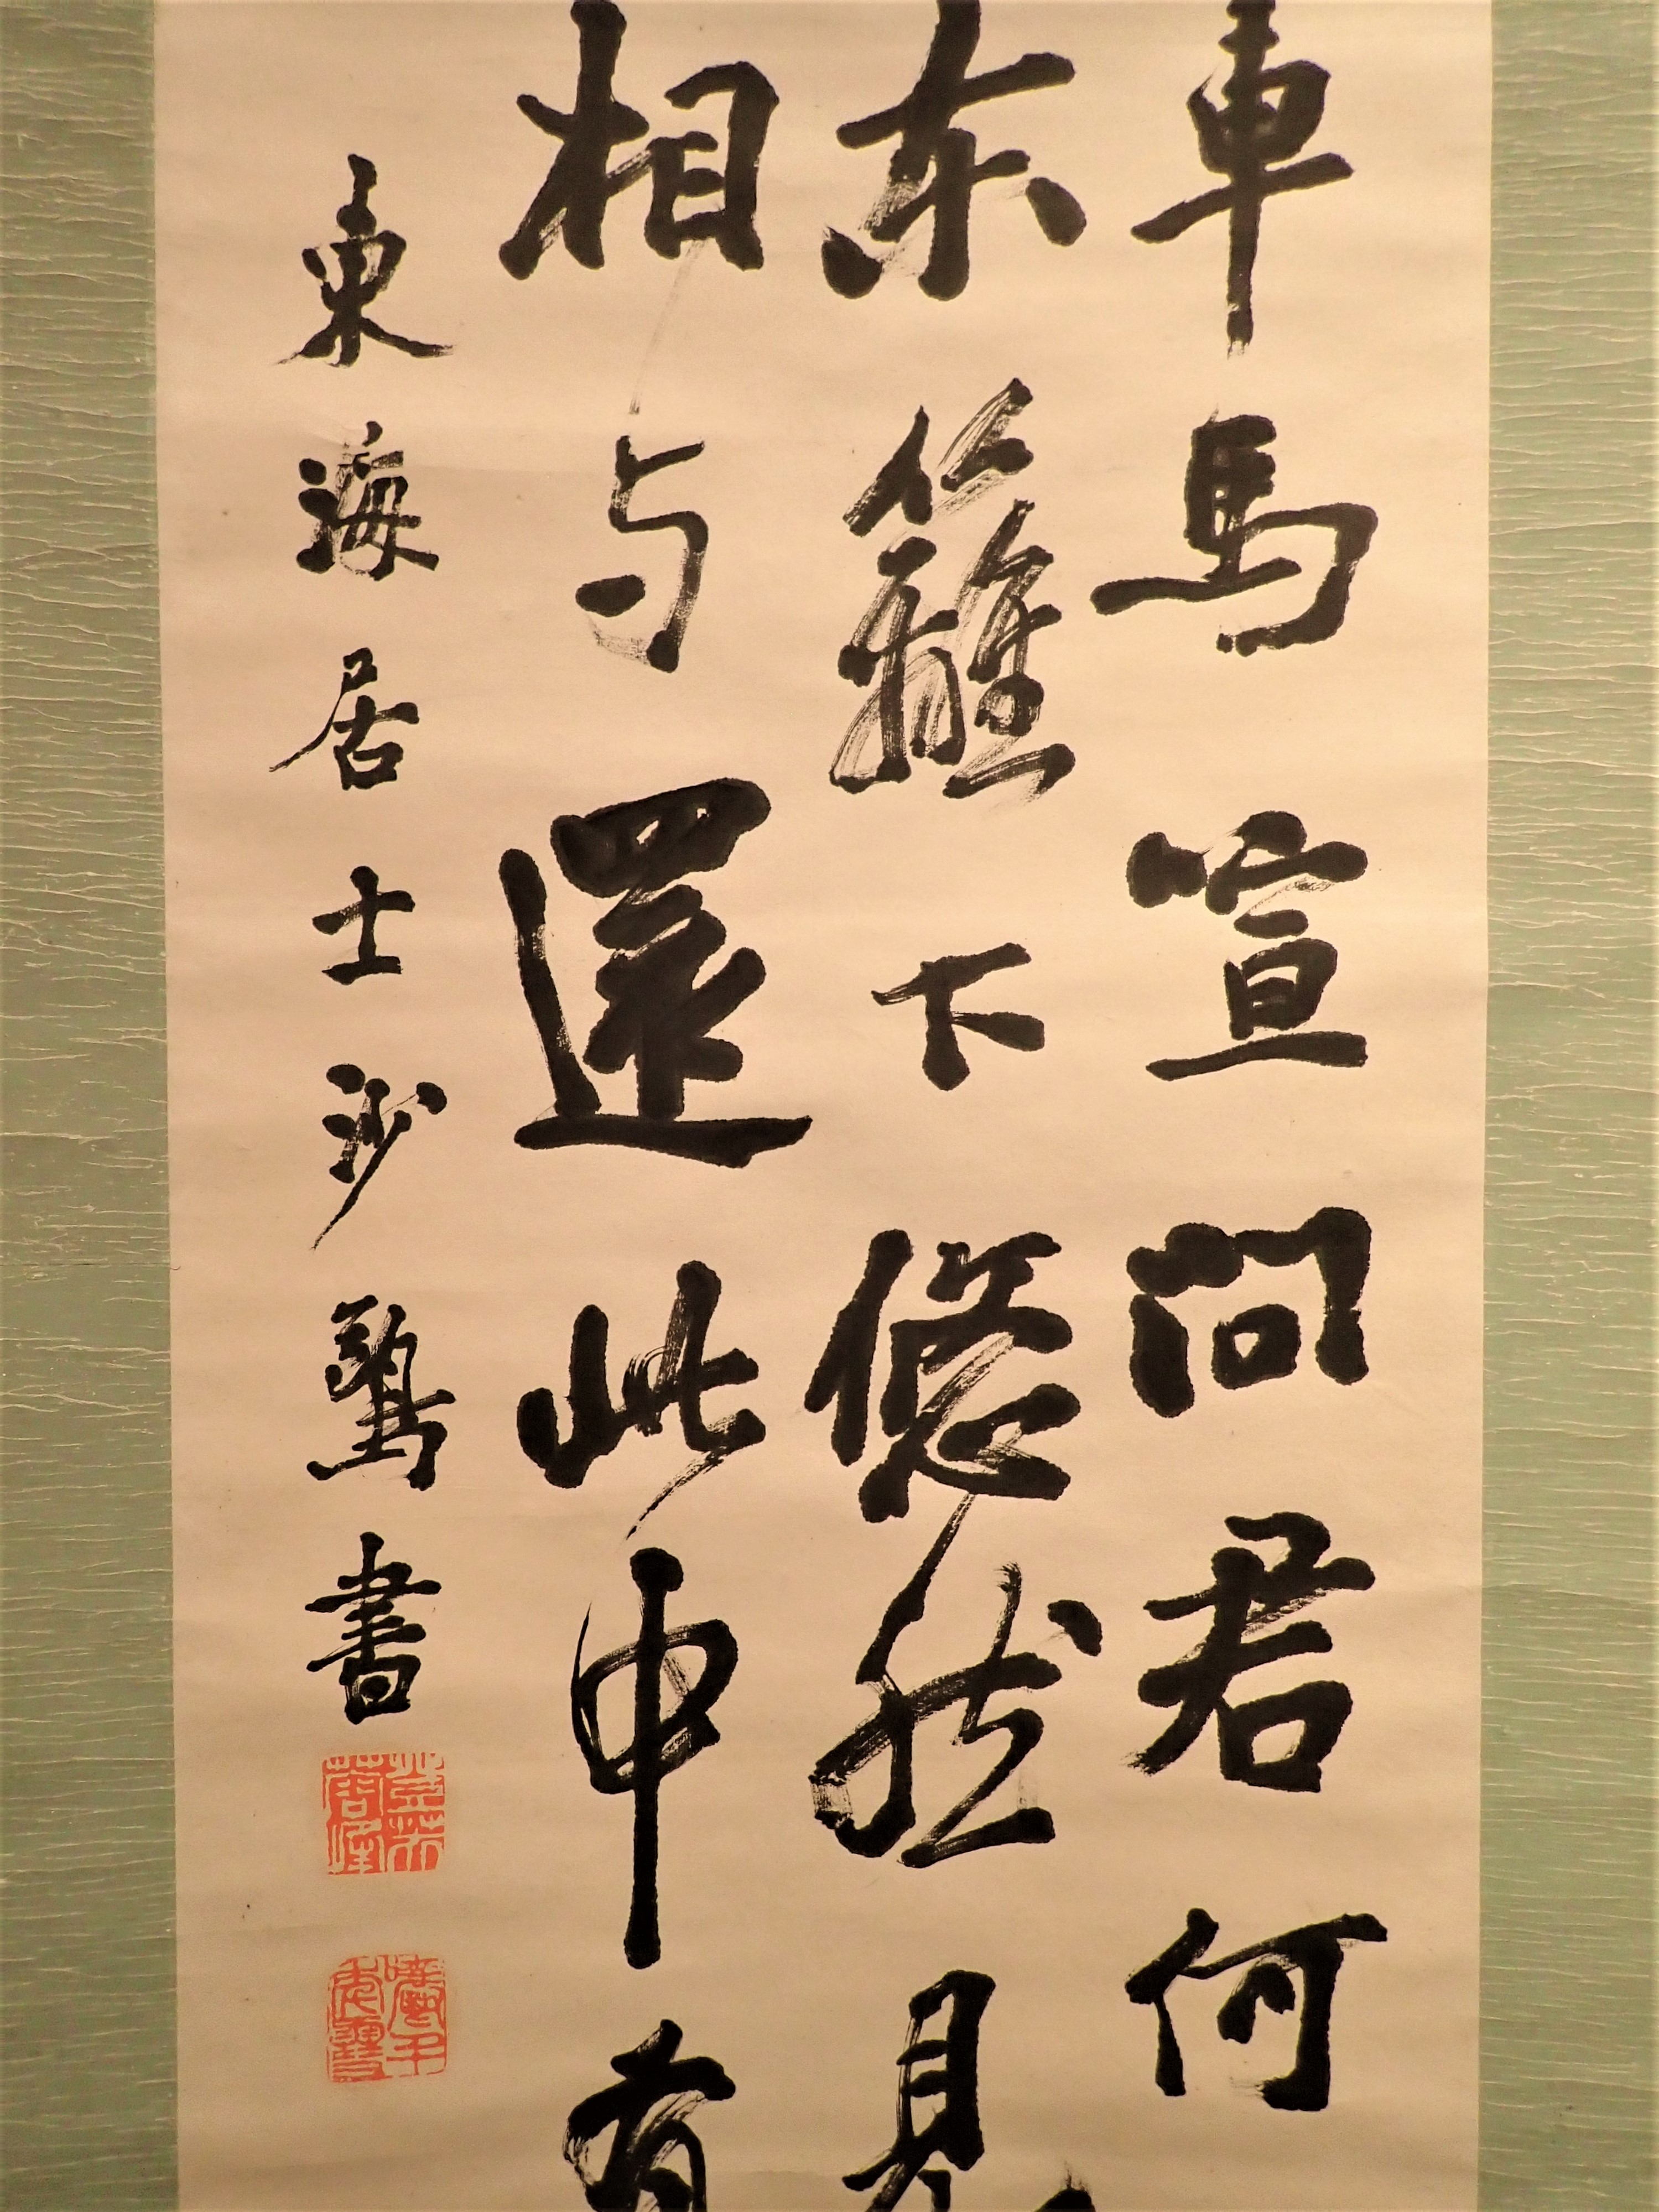 車馬喧問君何
东籬下悠然見
相与還此中有
東海居士沙鷗書